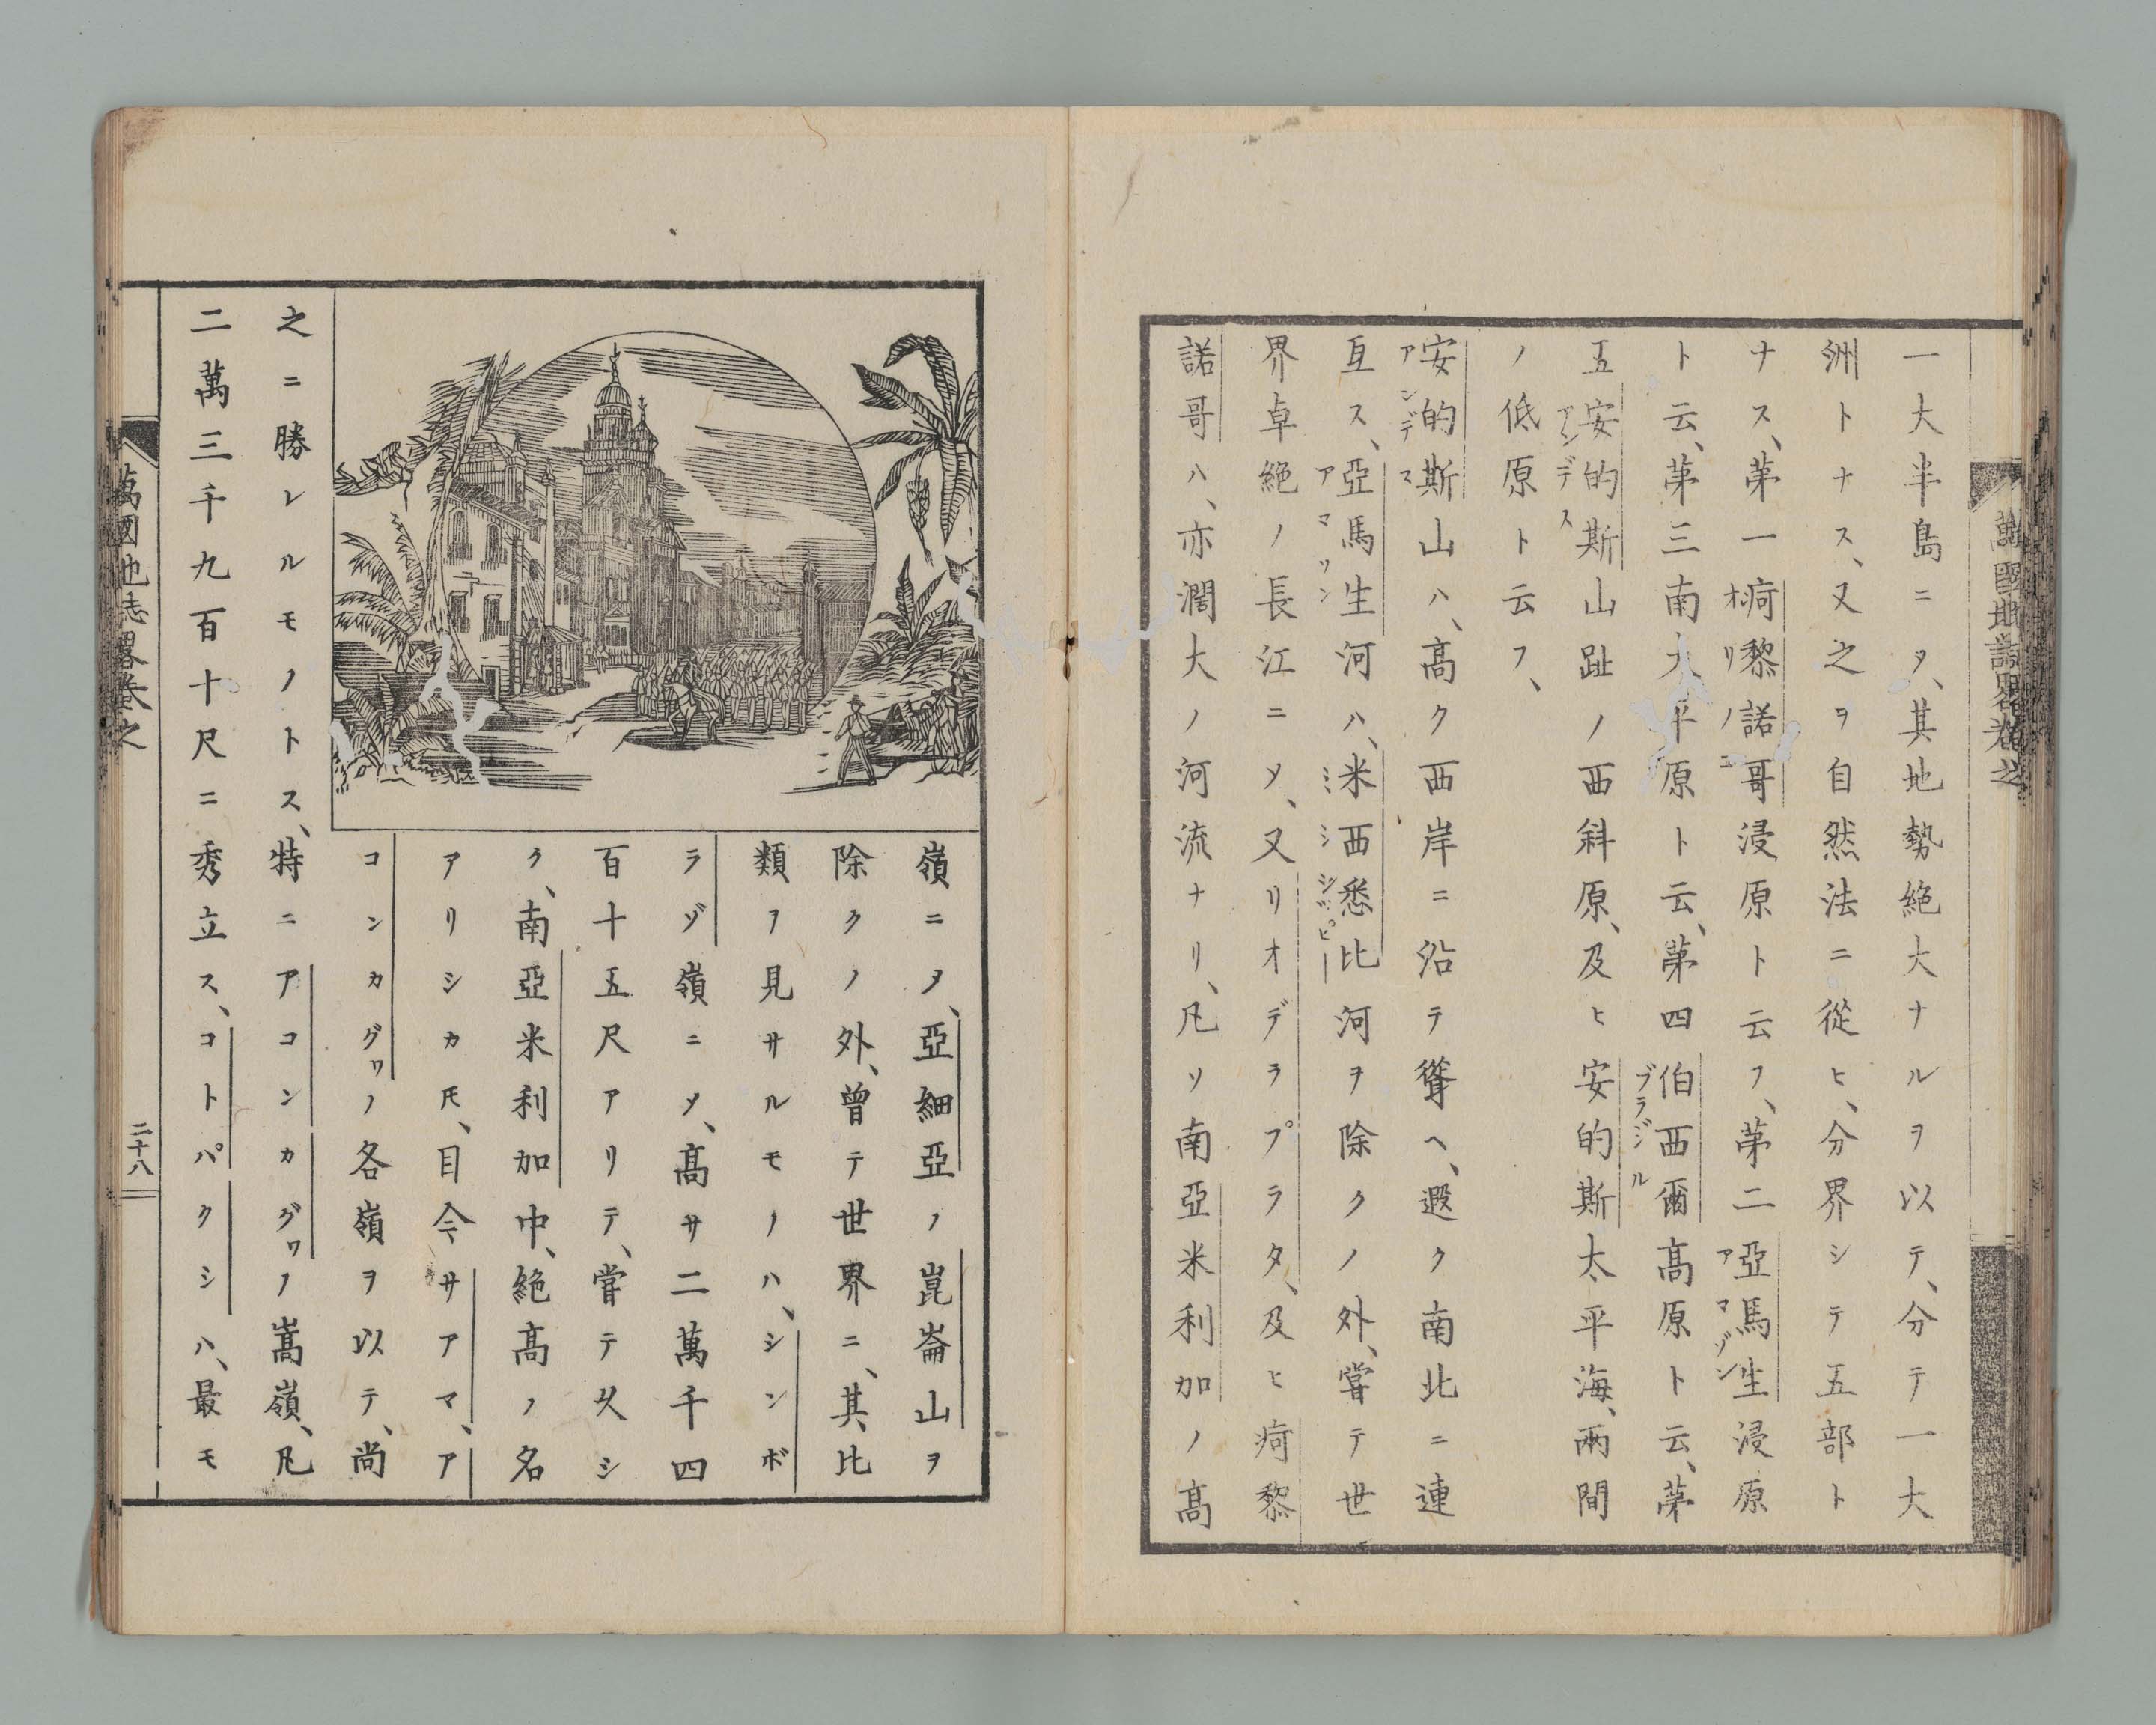 一大半島ニ〆、其地勢絶大ナルヲ以テ、分テ一大
洲トナス、又之ヲ自然法ニ從ヒ、分界シテ五部ト
ナス、第一疴黎諾哥浸原ト云フ、第二亞馬生浸原
オリノコ
アマゾン
ト云、第三南太平原ト云、第四伯西爾高原ト云、第
ブラジル
五安的斯山趾ノ西斜原、及ヒ安的斯太平海、兩間
アンデス
ノ低原ト云フ、
安的斯山ハ、高ク西岸ニ沿テ聳ヘ、遐ク南北ニ連
アンデス
亙ス、亞馬生河ハ、米西悉比河ヲ除クノ外、嘗テ世
アマソン
ミシシッピー
界卓絶ノ長江ニ〆、又リオデラプラタ、及ヒ疴黎
諾哥ハ、亦濶大ノ河流ナリ、凡ソ南亞米利加ノ高
萬國地誌畧卷之
嶺ニ〆、亞細亞ノ崑崙山ヲ
除クノ外、曾テ世界ニ、其比
類ヲ見サルモノハ、シンボ
ラゾ嶺ニ〆、高サ二萬千四
百十五尺アリテ、嘗テ久シ
ク、南亞米利加中、絶高ノ名
アリシカ𪜈、目今サアマ、ア
コンカグワノ各嶺ヲ以テ、尚
之ニ勝レルモノトス、特ニアコンカグワノ嵩嶺、凡
二萬三千九百十尺ニ秀立ス、コトパクシハ、最モ
萬國地誌畧卷之
二十八